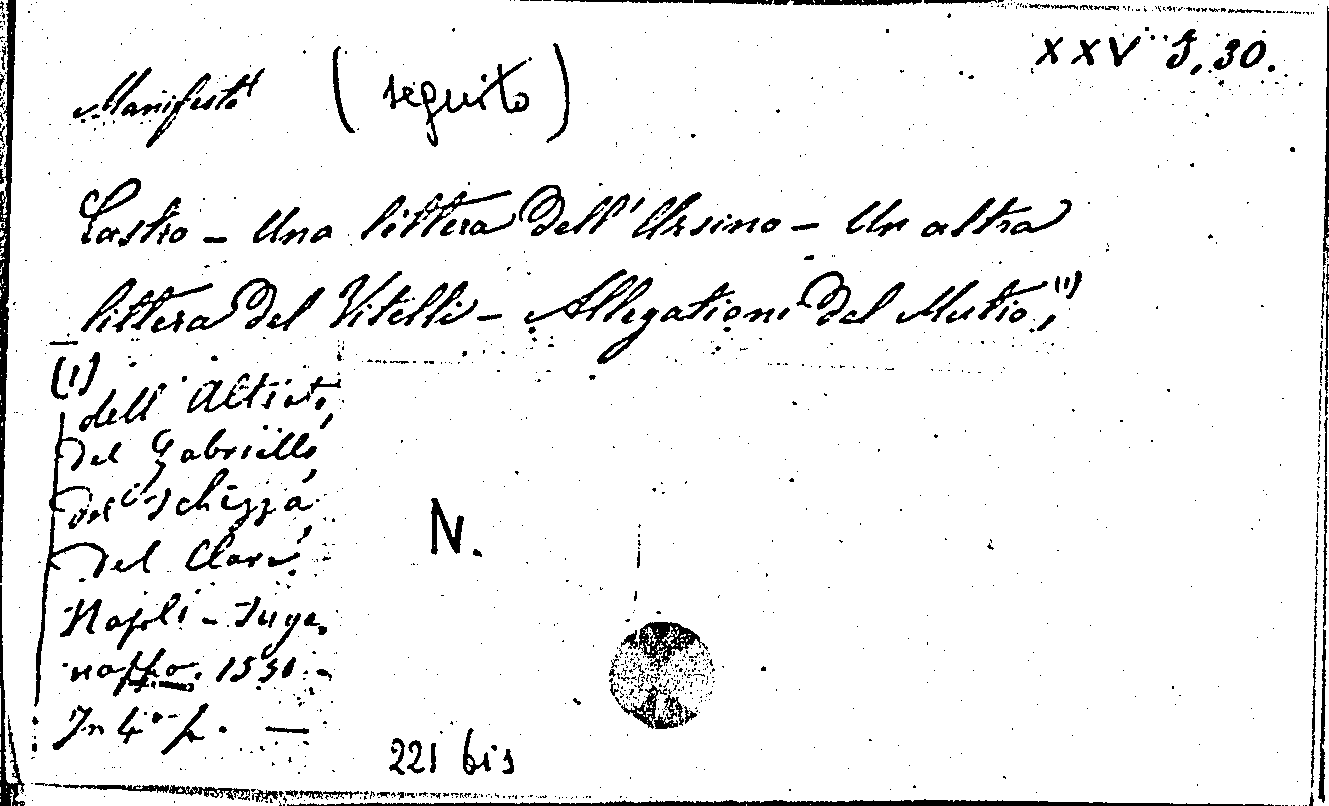 XXV J, 30.
Manifesto (seguito)
Castro - Una littera dell'Ursino - Un altra
littera del Vitelli - Allegationi del Mutio, (1)
(1) dell'Altiato,
del Gabrielli,
del Schizza,
del Clara,
Napoli - Suga.
nappo. 1531 -
In 4° p. —
N.
221 bis